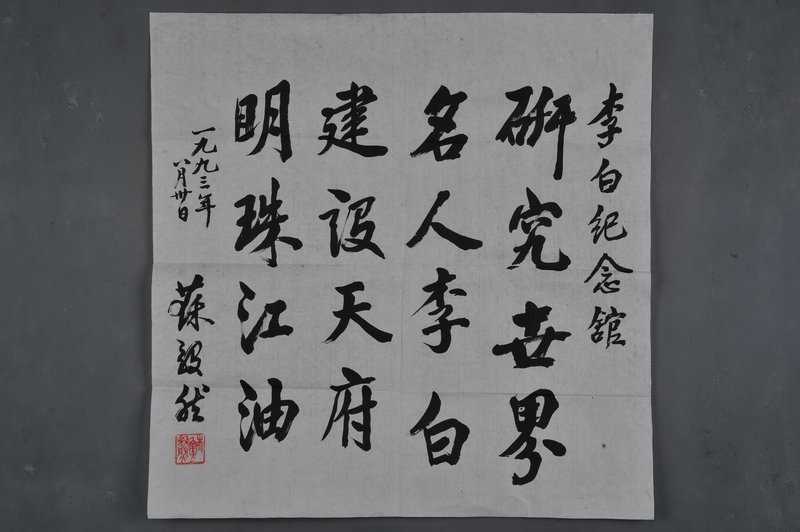 李白纪念馆
研究世界
名人李白
建设天府
明珠江油
一九九三年
八月卅日
苏毅然